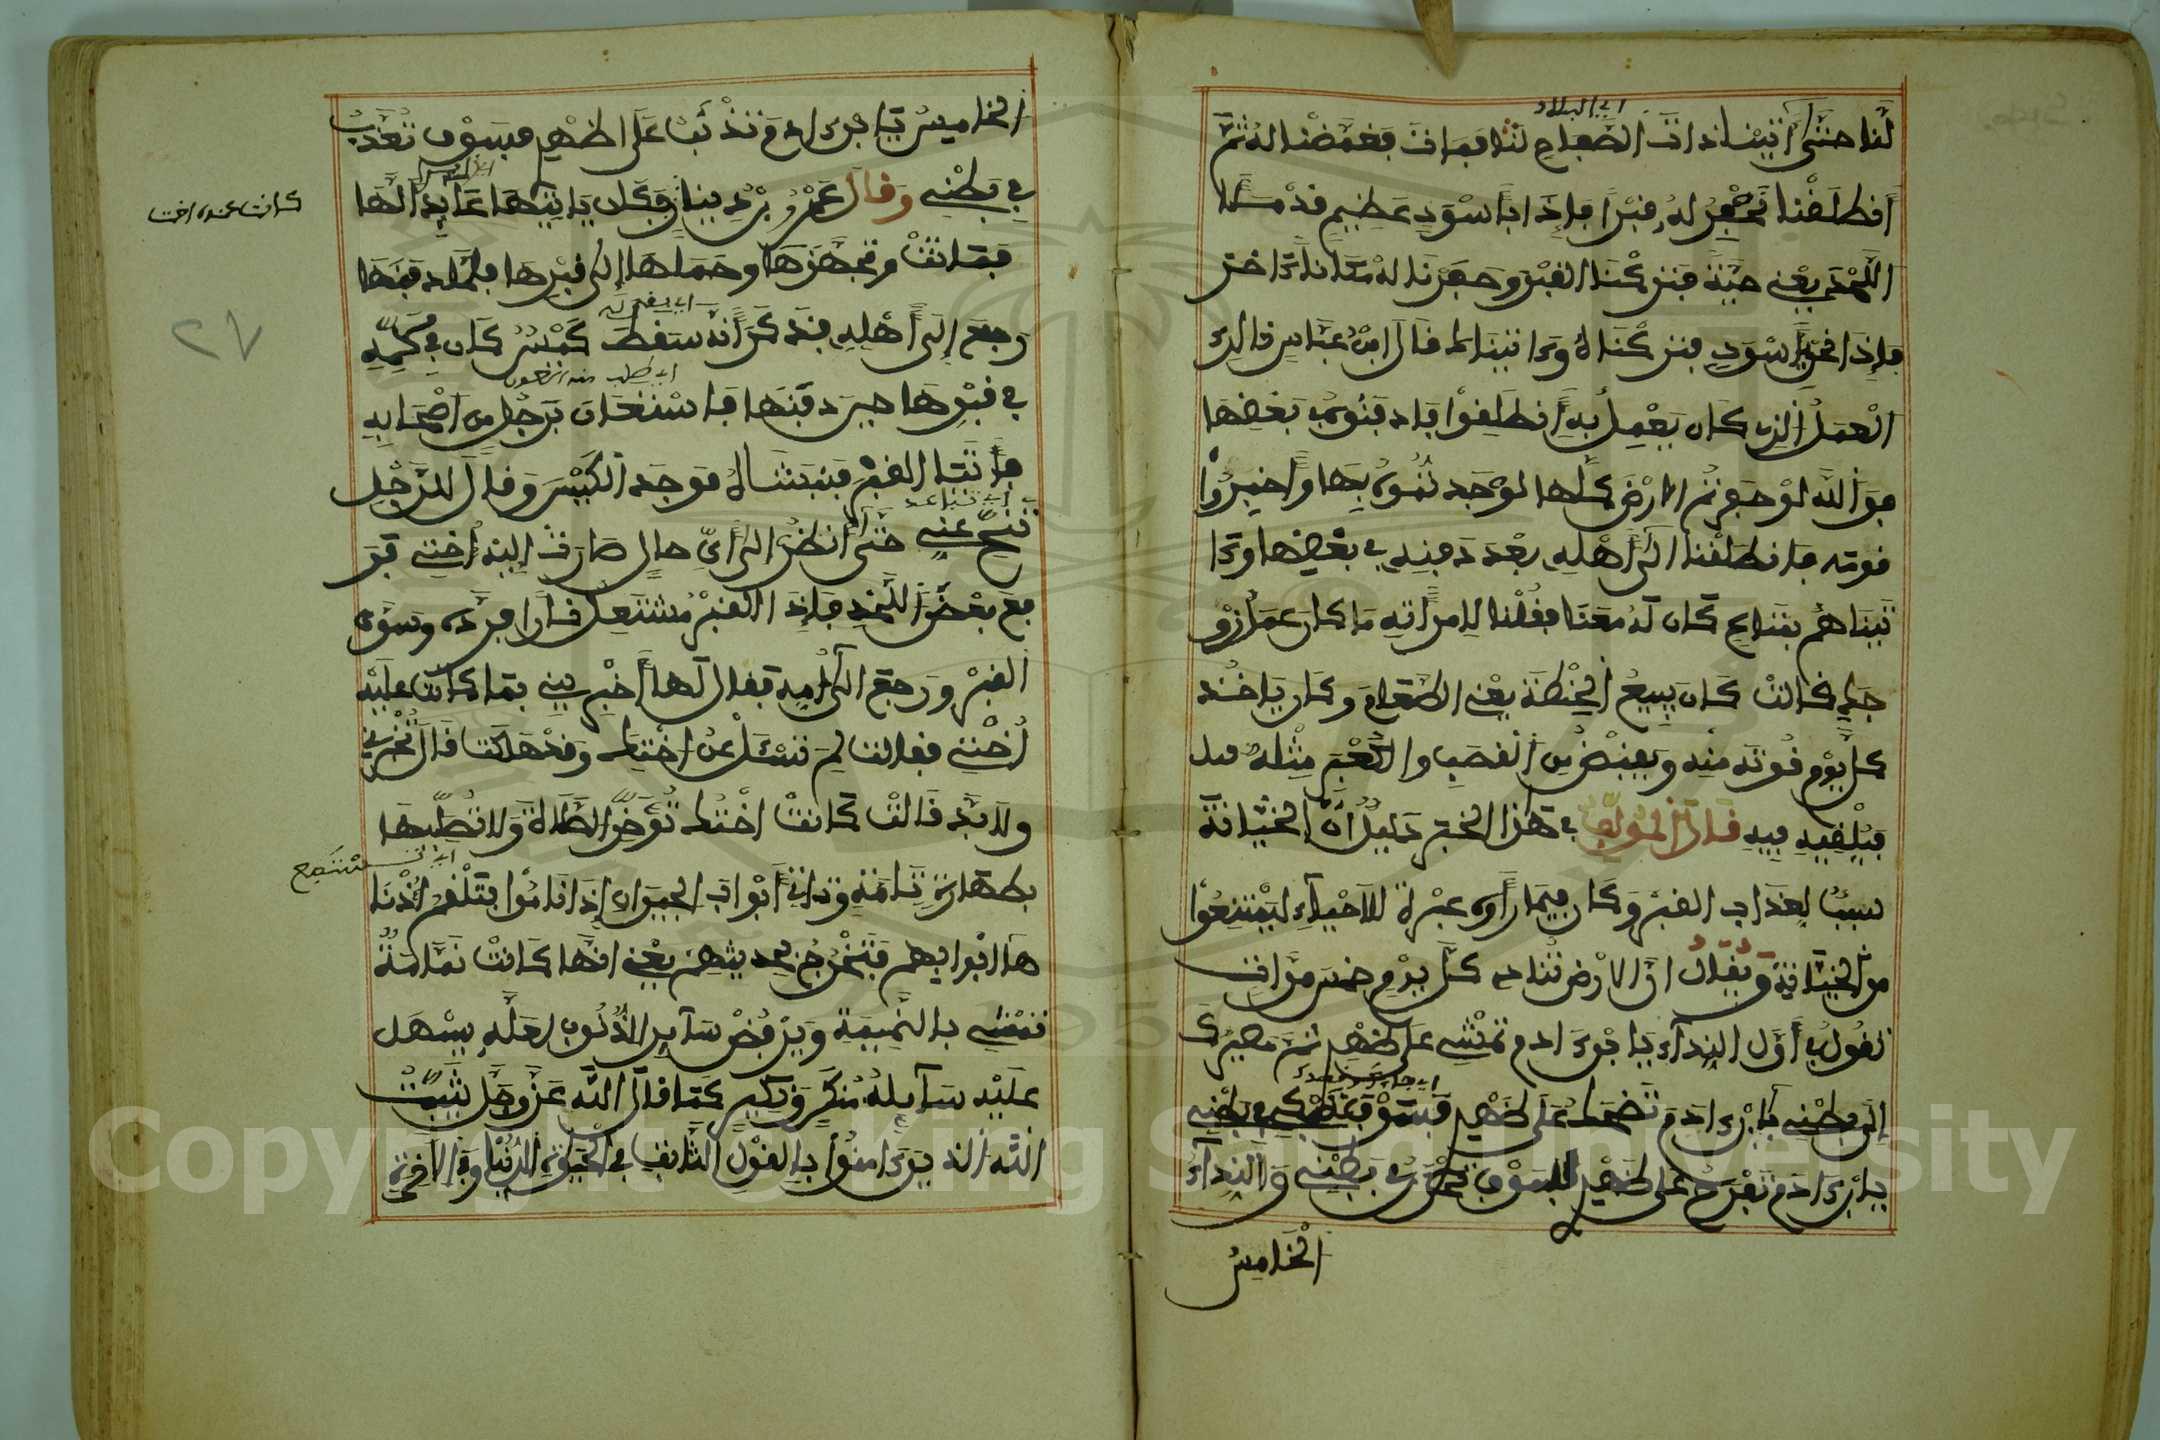 لنا حتى أتينا ذات الصفاح لنا فمات فغمضنا له ثم
اي البلاد
انطلقنا نحفر له قبرا فإذا بأسود عظيم قد ملأ
اللحد يعني حية فتركنا القبر وحفرنا له مكانا آخر
فإذا نحن بأسود فتركناه وءاتيناك فقال ابن عباس ذالك
العمل الذي كان يعمل به انطلقوا فادفنوه في بعضها
فوالله لو حفرتم الارض كلها لوجدتموه بها وأخبروا
قومه فانطلقنا الى أهله بعد دفنه في بعضها وءا
تيناهم بمتاع كان له معنا فقلنا لامرأته ما كان عمل زو
جك قالت كان يبيع الحنطة يعني الطعام وكان ياخذ
كل يوم قوته منه ويقبض من القصب والكعبر مثله
فيلقيه فيه قال المؤلف في هذا الخبر دليل أن الخيانة
سبب لعذاب القبر وكان فيما رأوه عبرة للأحياء ليمتنعوا
من الخيانة ويقال ان الارض تنادي كل يوم خمس مرات
تقول في أول النداء يا ابن ءادم تمشي على ظهري ثم مصيرك
إلى بطني يا ابن ءادم تضحك على ظهري فسوف تبكي في بطني
يا ابن ءادم تفرح على ظهري فسوف تحزن في بطني والنداء
الخامس
الخامس يا ابن ءادم تذنب على ظهري فسوف تعذب
في بطني وقال عمرو بن دينار وكان
كانت عنده اخت
فماتت فجهزها وحملها إلى قبرها فلما دفنها
ورجع إلى أهله فذكر أنه سقط كيس كان في كمه
في قبرها حين دفنها فاستعان برجل من أصحابه
فأتيا القبر فنبشاه فوجد الكيس وقال للرجل
اي تباعد
تنح عني حتى أنظر الى أي حال صارت إليه أختي فر
فع بعض اللحد فإذا القبر مشتعل نارا فرده وسوى
القبر ورجع الى أمه فقال لها أخبريني بما كانت عليه
أختي فقالت لم تسئل عن اختك وقد هلكت قال أخبريني
ولابد قالت كانت اختك تؤخر الصلاة ولا تصليها
بطهارة تامة وتاتي أبواب الجيران إذا ناموا فتلقم أذنا
ها ابوابهم فتخرج بحديثهم يعني انها كانت نمامة
فتمشي بالنميمة ويرفض سآير الذنوب لعله يسهل
عليه سآيله منكر ونكير كما قال الله عز وجل يثبت
الله الذين ءامنوا بالقول الثابت في الحيوة الدنيا وفي الاخرة
٢٧